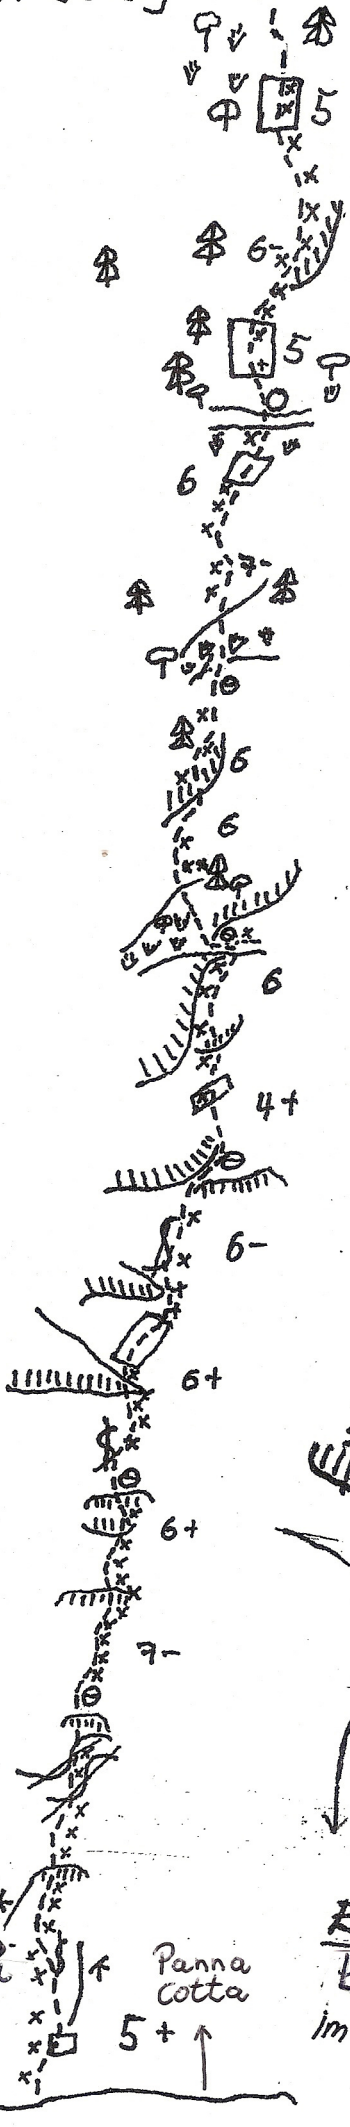 5
6-
5
6
7-
6
6
6
4+
6-
6+
6+
7-
Panna
Cotta
5+
im